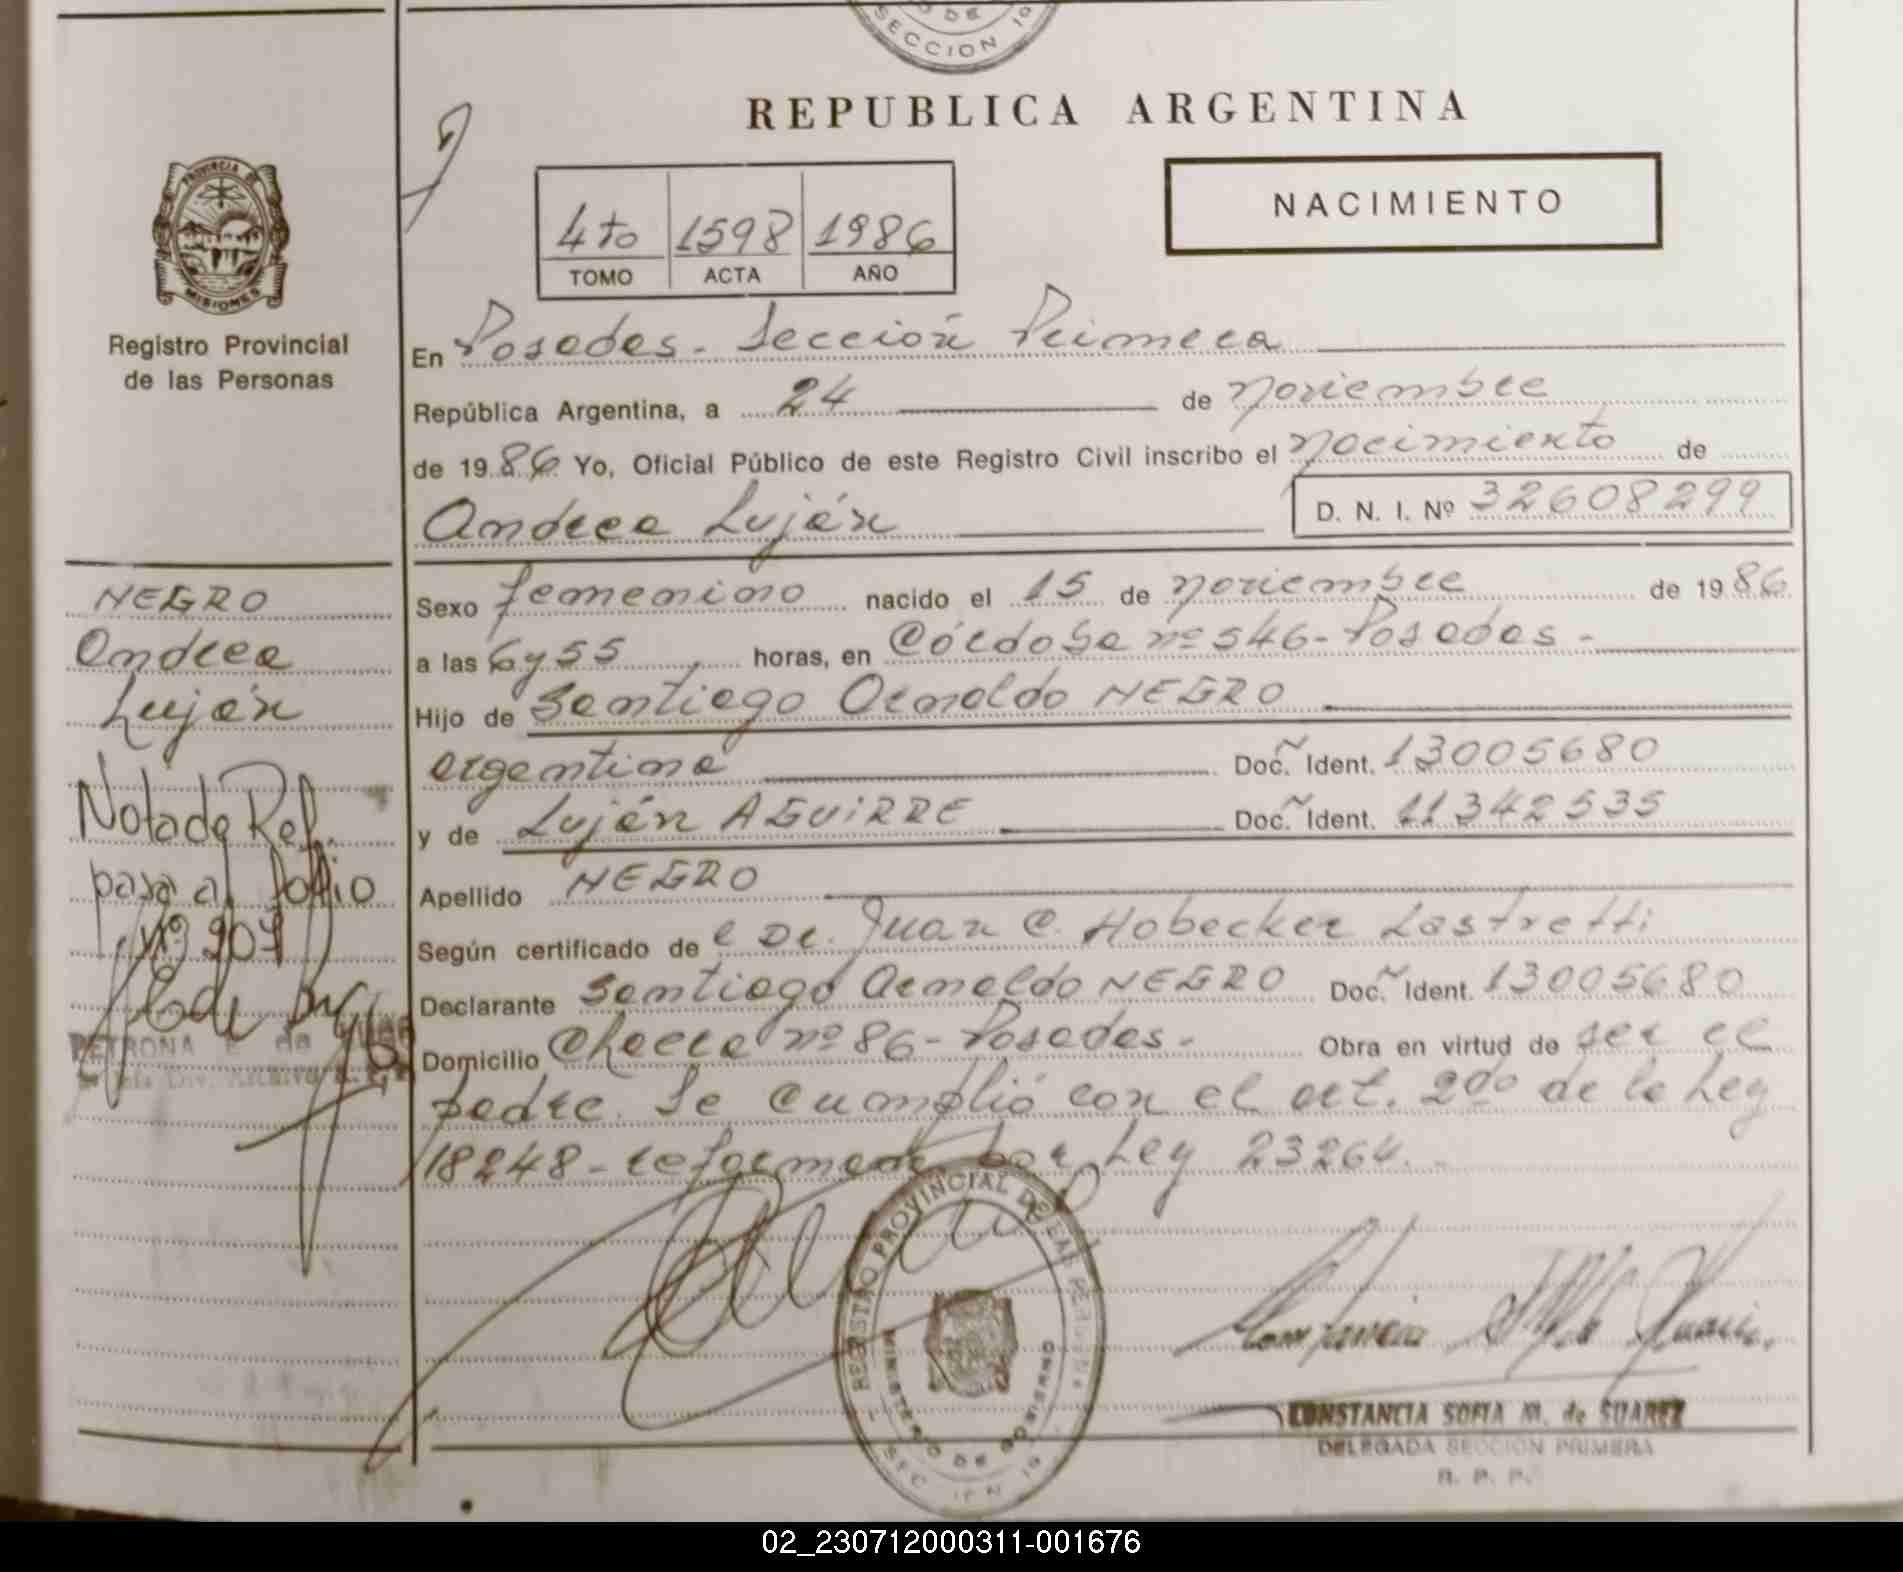 DE
SECCION 1º
REPUBLICA ARGENTINA
PROVINCIA DE
MISIONES
Registro Provincial
de las Personas
4to 1598 1986
TOMO ACTA AÑO
NACIMIENTO
En Posadas - Sección Primera
República Argentina, a 24 de noviembre
de 1986 Yo, Oficial Público de este Registro Civil inscribo el nacimiento de
Andrea Luján D. N. I. Nº 32608299
NEGRO
Andrea
Luján
Sexo femenino nacido el 15 de noviembre de 1986
a las 6 y 55 horas, en Córdoba nº 546 - Posadas -
Hijo de Santiago Arnaldo NEGRO
argentino Doc. Ident. 13005680
y de Luján AGUIRRE Doc. Ident. 11342535
Apellido NEGRO
Según certificado de el Dr. Juan C. Hobecker Lastretti
Declarante Santiago Arnaldo NEGRO Doc. Ident. 13005680
Domicilio Checra nº 86 - Posadas - Obra en virtud de ser el
padre. Se cumplió con el art. 2do de la Ley
18248 - reformada por Ley 23264.
Nota de Ref.
pasa al folio
Nº 207
PETRONA E. de
REGISTRO PROVINCIAL DE LAS PERSONAS
MINISTERIO DE GOBIERNO
CONSTANCIA SOFIA M. de SUAREZ
DELEGADA SECCION PRIMERA
R. P. P.
02_230712000311-001676